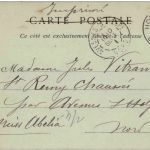 Imprimé
CARTE POSTALE
Ce côté est exclusivement réservé à l'adresse
Madame Jules Vitran
St Remy Chaussée
par Avesnes s/ Helpe
Miss Abelia
Nord